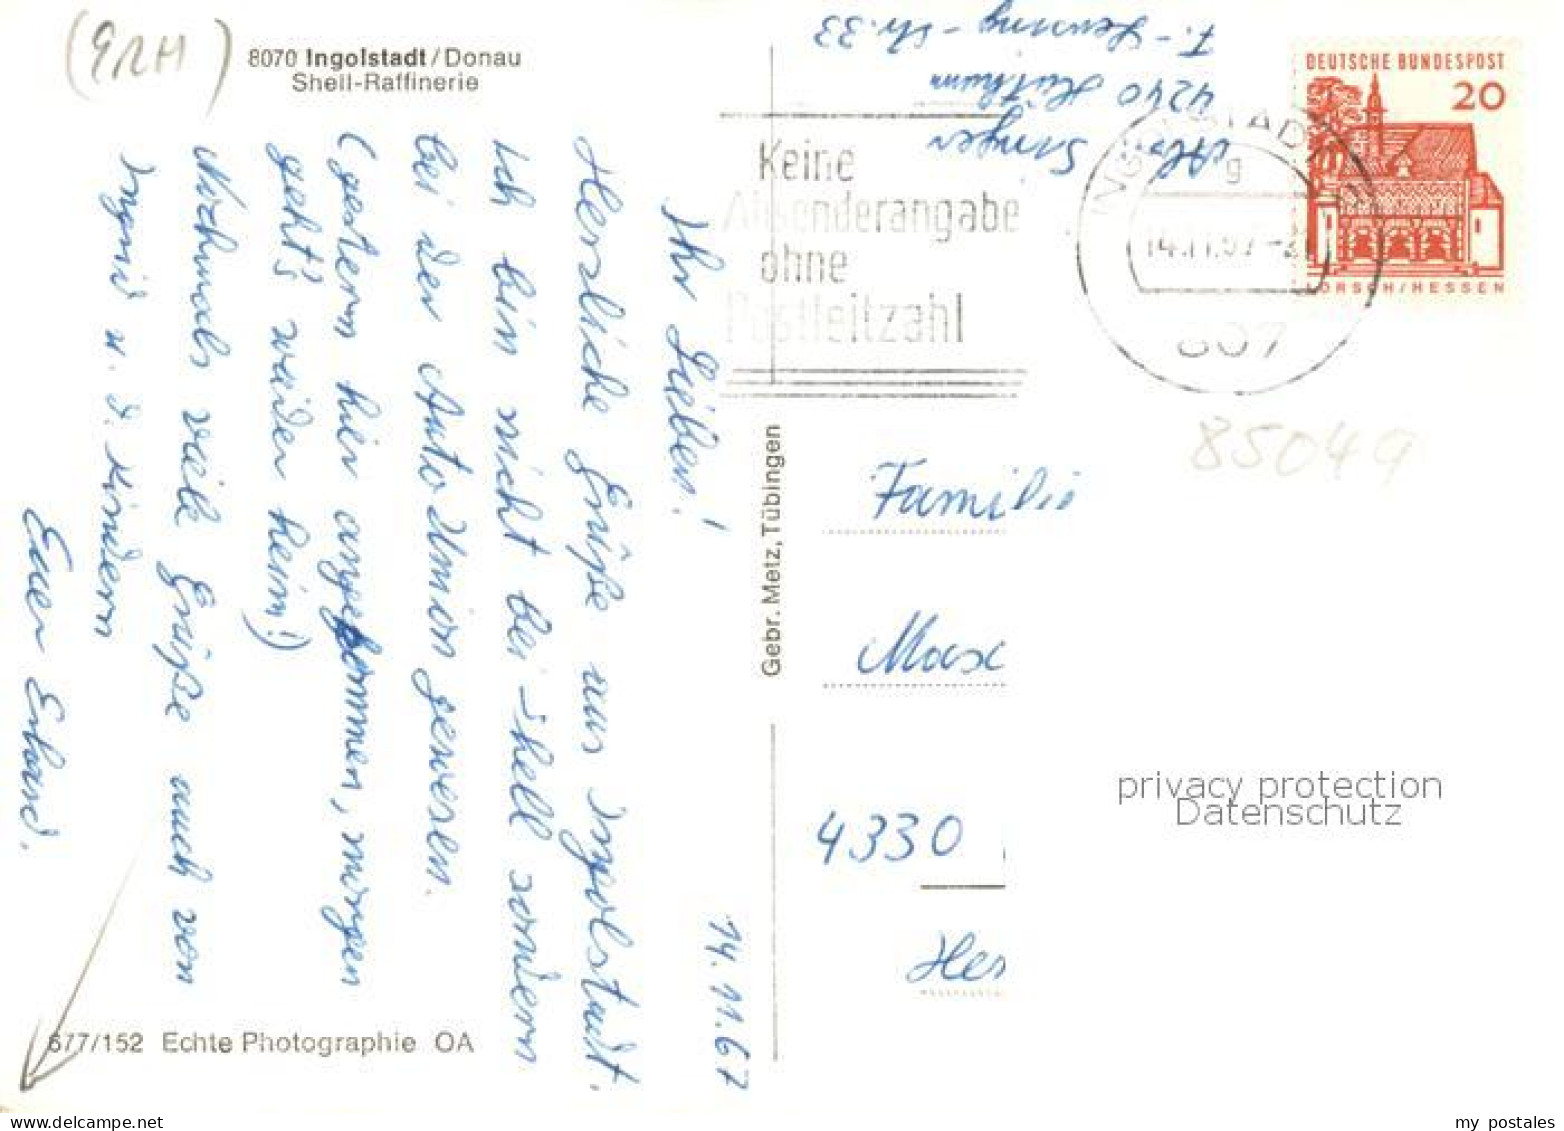 (ERH)
8070 Ingolstadt/Donau
Shell-Raffinerie
14.11.67
Ihr Lieben!
Herzliche Grüße aus Ingolstadt.
Ich bin nicht bei Shell sondern
bei der Auto Union gewesen.
(gestern hier angekommen, morgen
geht's wieder heim!)
Nochmals viele Grüße auch von
Ingrid u. d. Kindern
Euer Erhard.
677/152 Echte Photographie OA
Gebr. Metz, Tübingen
Abs.
4240
Str. 33
Keine
Absenderangabe
ohne
Postleitzahl
INGOLSTADT
g
14.11.67-21
807
DEUTSCHE BUNDESPOST
20
LORSCH/HESSEN
85049
Familie
Max
4330
Her
privacy protection
Datenschutz
my postales